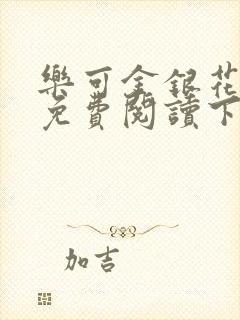 樂可金銀花
免費閱讀下
加吉